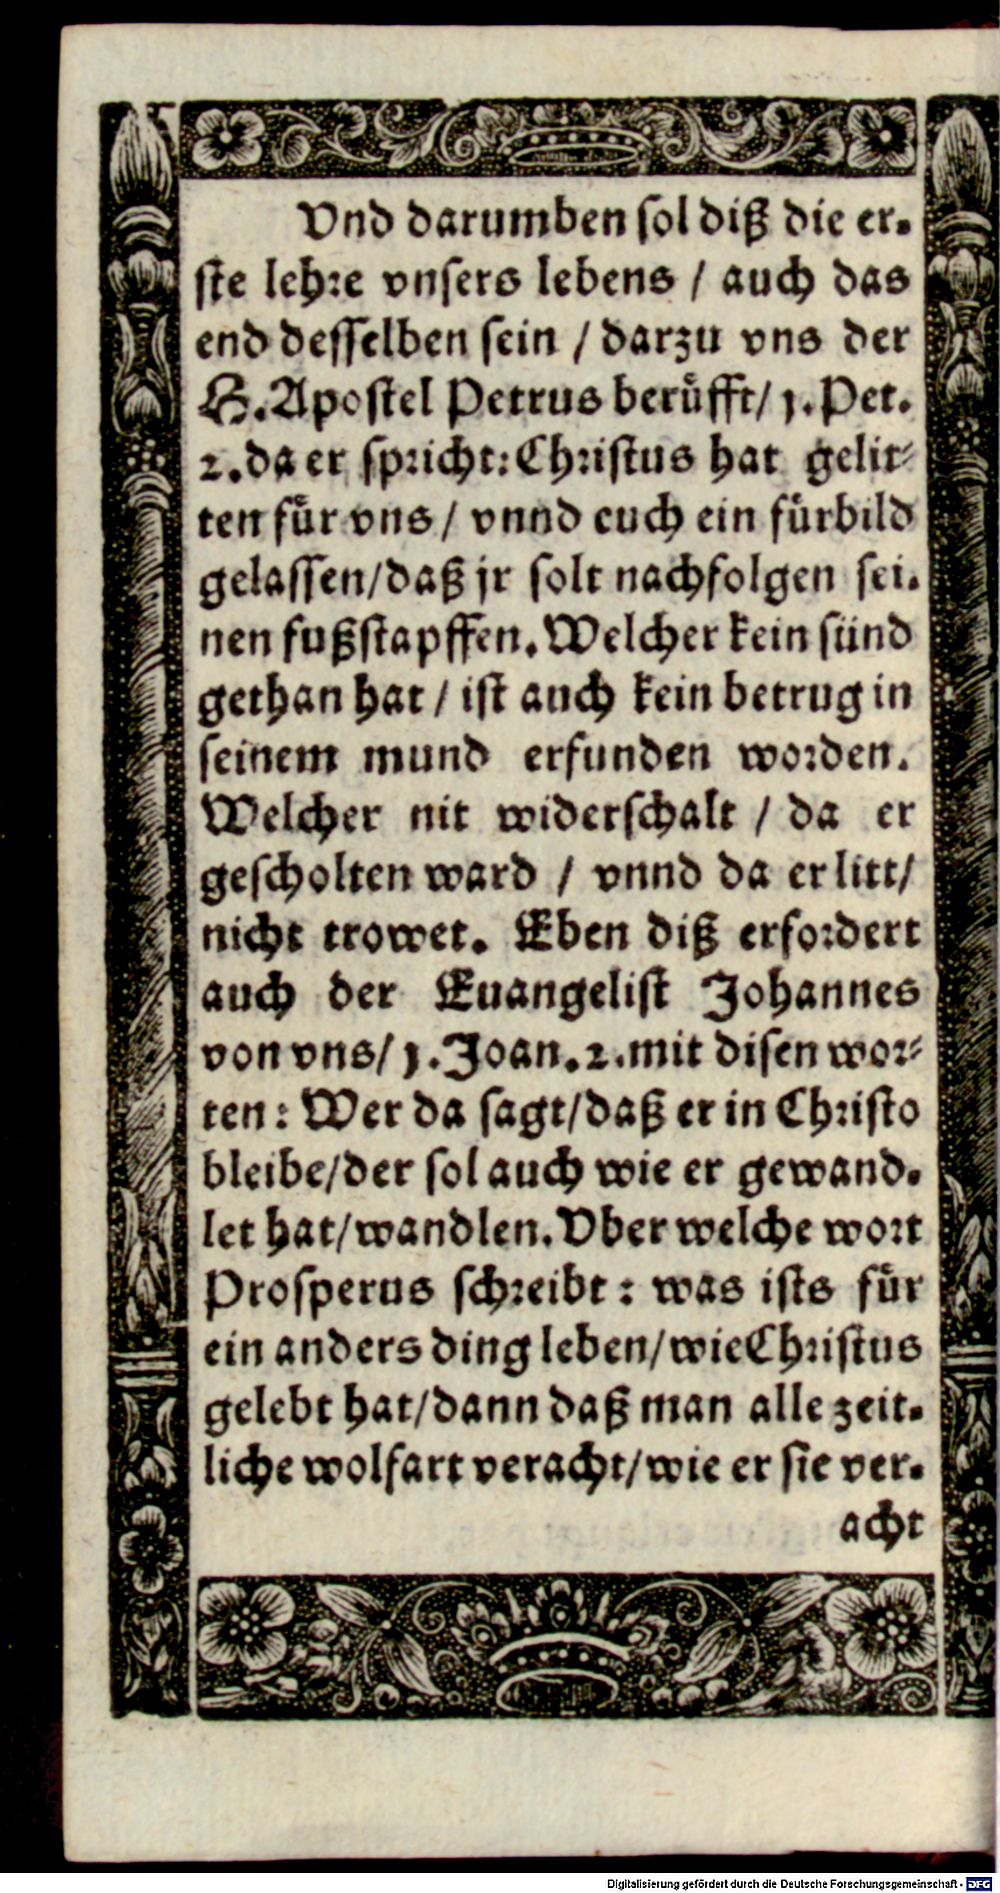 Vnd darumben sol diß die er-
ste lehre vnsers lebens / auch das
end desselben sein / darzu vns der
H. Apostel Petrus berüfft / 1. Pet.
2. da er spricht: Christus hat gelit-
ten für vns / vnnd euch ein fürbild
gelassen / daß jr solt nachfolgen sei-
nen fußstapffen. Welcher kein sünd
gethan hat / ist auch kein betrug in
seinem mund erfunden worden.
Welcher nit widerschalt / da er
gescholten ward / vnnd da er litt /
nicht trowet. Eben diß erfordert
auch der Euangelist Johannes
von vns / 1. Joan. 2. mit disen wor-
ten: Wer da sagt / daß er in Christo
bleibe / der sol auch wie er gewand-
let hat / wandlen. Vber welche wort
Prosperus schreibt: was ists für
ein anders ding leben / wie Christus
gelebt hat / dann daß man alle zeit-
liche wolfart veracht / wie er sie ver-
acht
Digitalisierung gefördert durch die Deutsche Forschungsgemeinschaft - DFG